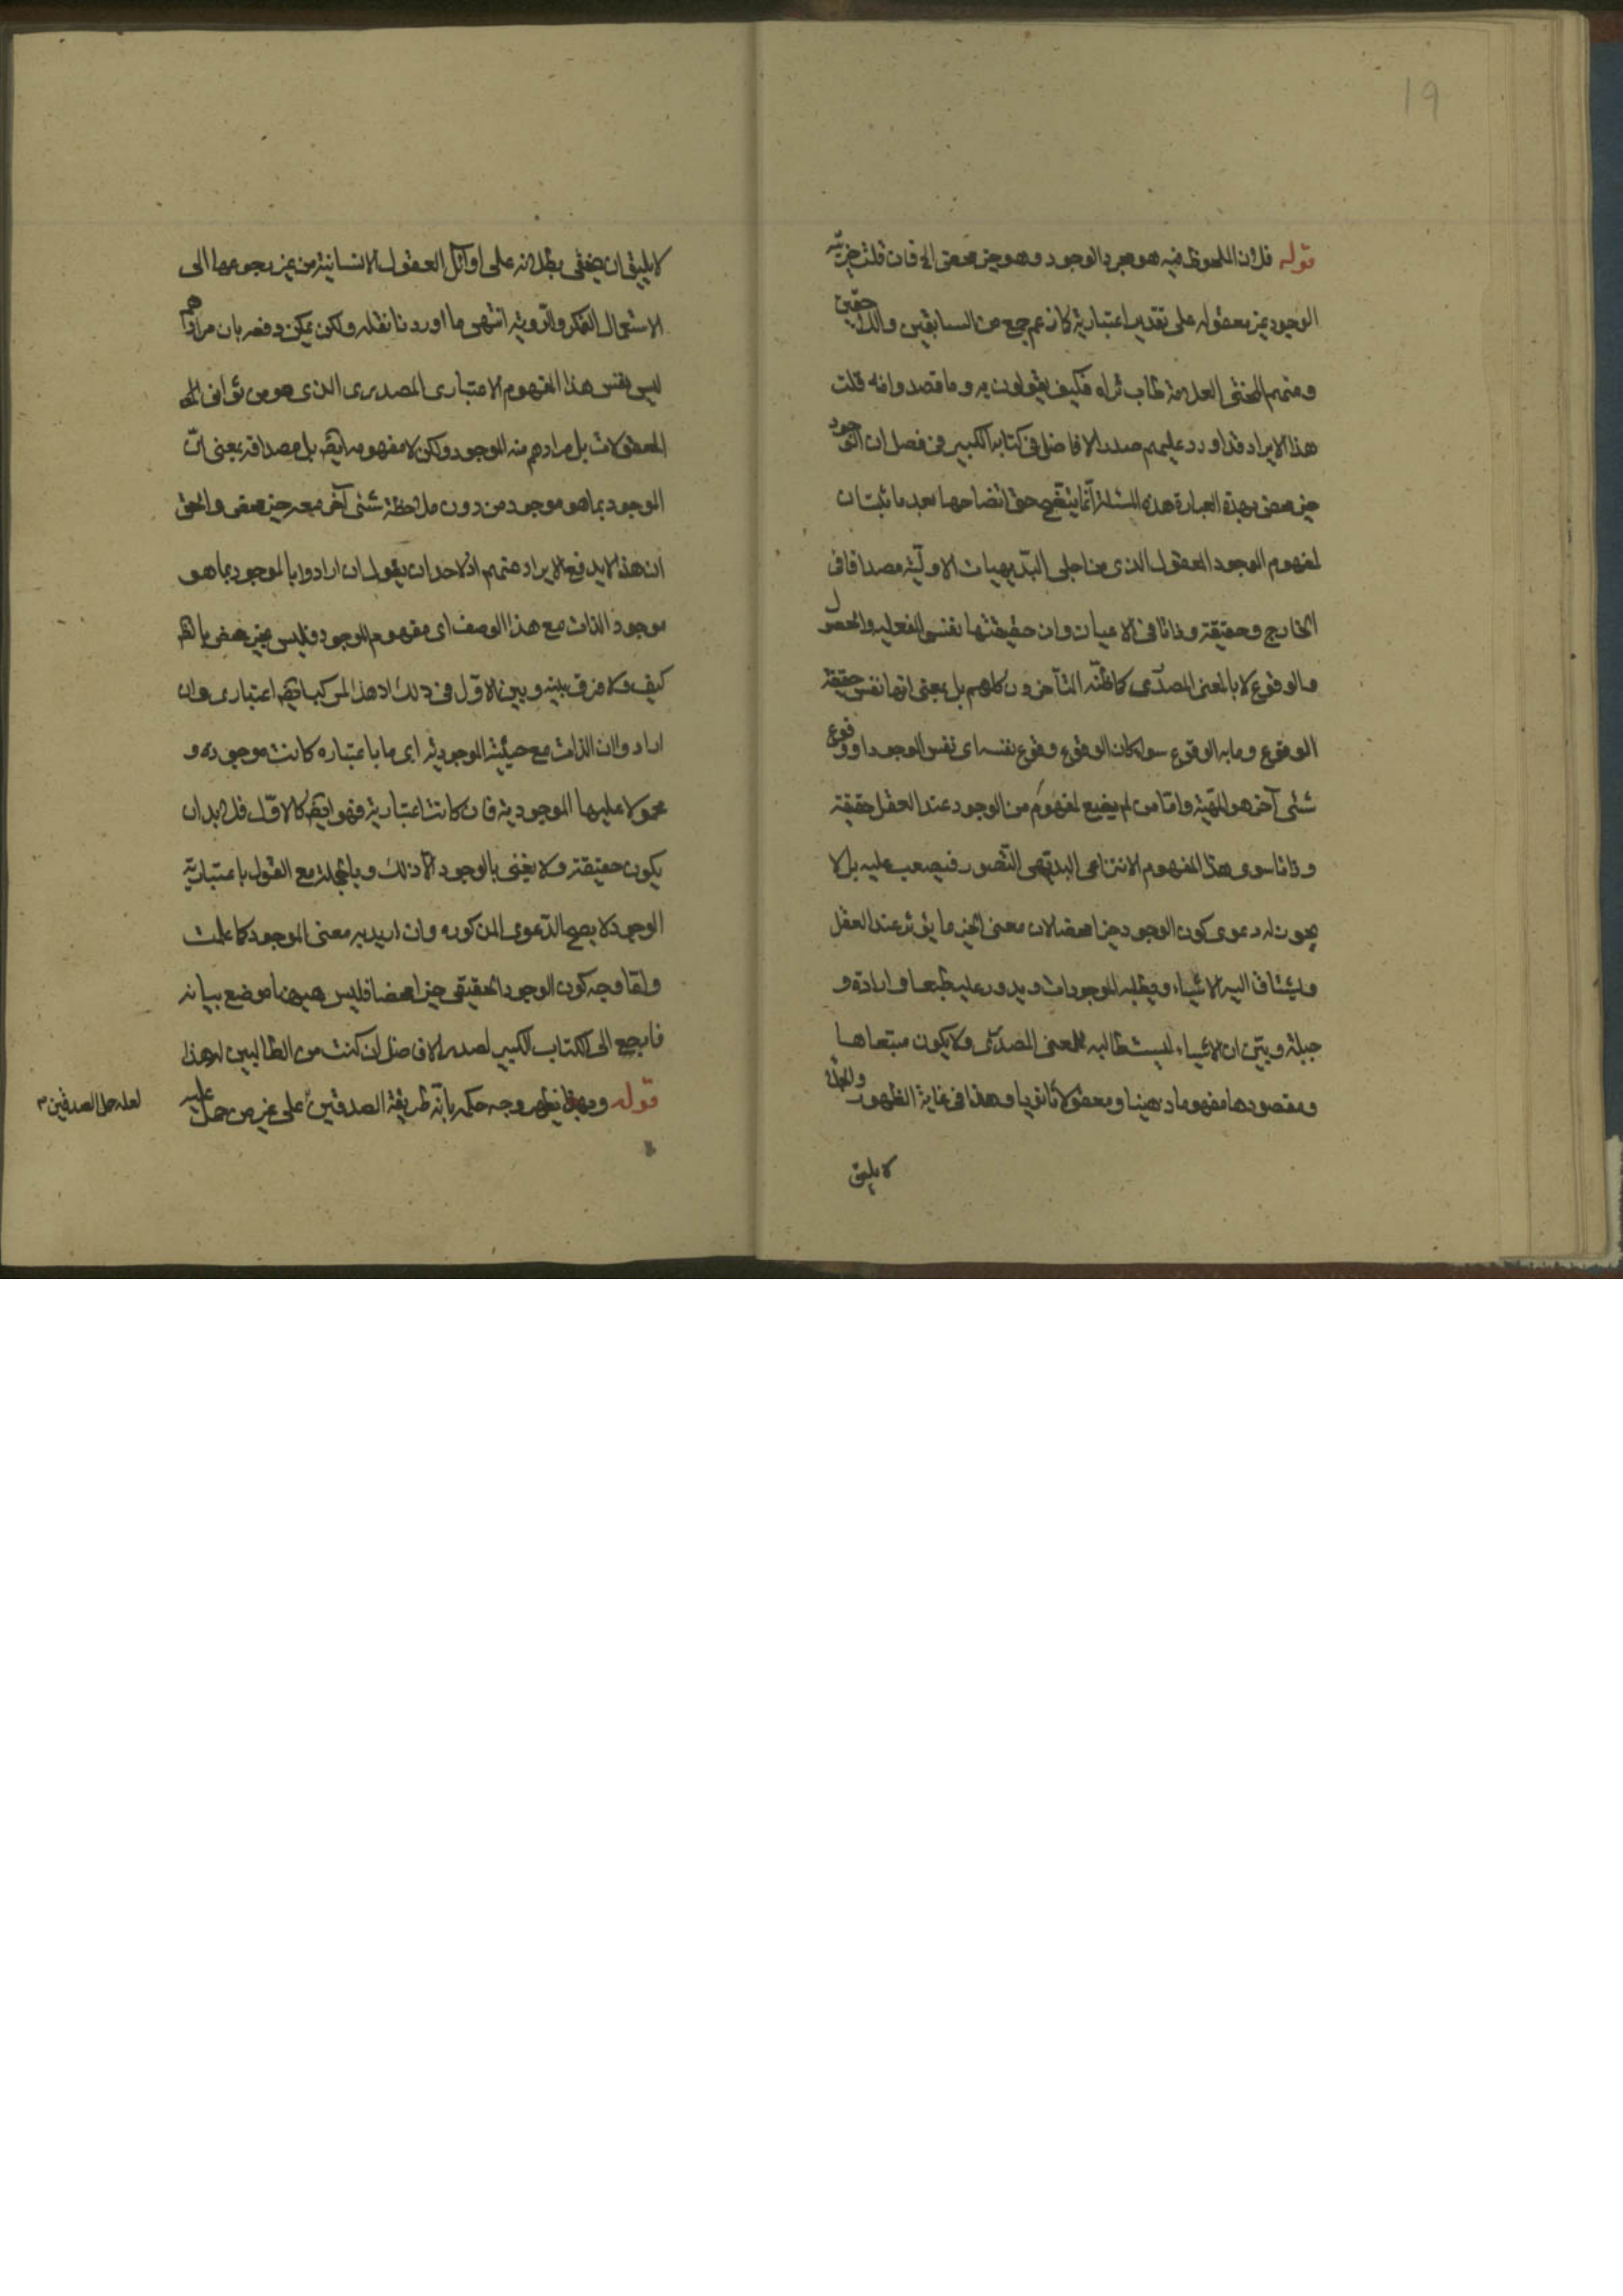 19
قوله فلان الملحوظ فيه هو مجرد الوجود وهو خير محض الخ فان قلت خيرية
الوجود غير معقولة على تقدير اعتباريته كما زعم جمع من السابقين واللاحقين
ومنهم المحشى العلامة طاب ثراه فكيف يقولون به وما قصدوا منه قلت
هذا الايراد قد اورد عليهم صدر الافاضل فى كتابه الكبير فى فصل ان الوجود
خير محض بهذه العبارة هذه المسئلة انما يتضح حق اتضاحها بعد ما ثبت ان
لمفهوم الوجود المعقول الذى من اجلى البديهيات الاولية مصداقا فى
الخارج وحقيقة وذاتا فى الاعيان وان حقيقتها نفس الفعلية والحصول
والوقوع لا بالمعنى المصدرى كما ظنه المتأخرون كلهم بل بمعنى انها نفس حقيقة
الوقوع وما به الوقوع سواء كان الوقوع وقوع نفسه اى نفس الوجود او وقوع
شئ آخر هو المهية واما من لم يضع لمفهوم من الوجود عند العقل حقيقة
وذاتا سوى هذا المفهوم الانتزاعى البديهى التصور فيصعب عليه بل لا
يجوز له دعوى كون الوجود خيرا محضا لان معنى الخير ما يؤثر عند العقل
ويشتاق اليه الاشياء ويطلبه الموجودات ويدور عليه طبعا وارادة و
جبلة وبين ان الاشياء ليست طالبة للمعنى المصدرى ولا يكون مبتغاها
ومقصودها مفهوما ذهنيا ومعقولا ثانويا وهذا فى غاية الظهور والجلاء
لا يليق
لا يليق ان يخفى بطلانه على اوائل العقول الانسانية من غير رجوعها الى
الاستعمال الفكر والروية انتهى ما اوردنا نقله ولكن يمكن دفعه بان مرادهم
ليس نفس هذا المفهوم الاعتبارى المصدرى الذى هو من ثوانى
المعقولات بل مرادهم منه الموجود ولكن لا مفهومه ايضا بل مصداقه بمعنى ان
الموجود بما هو موجود من دون ملاحظة شئ آخر معه خير محض والحق
ان هذا لا يدفع الايراد عنهم اذ لاحد ان يقول ان ارادوا بالموجود بما هو
موجود الذات مع هذا الوصف اى مفهوم الوجود فليس بخير محض
كيف ولا فرق بينه وبين الاول فى ذلك اذ هذا المركب ايضا اعتبارى وان
ارادوا ان الذات مع حيثية الموجودية اى ما باعتباره كانت موجودة و
محمولا عليها الموجودية فان كانت اعتبارية فهو ايضا كالاول فلا بد ان
يكون حقيقة ولا يعنى بالوجود الا ذلك وبالجملة مع القول باعتبارية
الوجود لا يصح الدعوى المذكورة وان اريد به معنى الموجود كما علمت
واما وجه كون الوجود الحقيقى خيرا محضا فليس هيهنا موضع بيانه
فارجع الى الكتاب الكبير لصدر الافاضل ان كنت من الطالبين لهذا
قوله وبهذا يظهر وجه حكمه بانه طريقة الصديقين على غير من حمل عليه
لعله حمل الصديقين